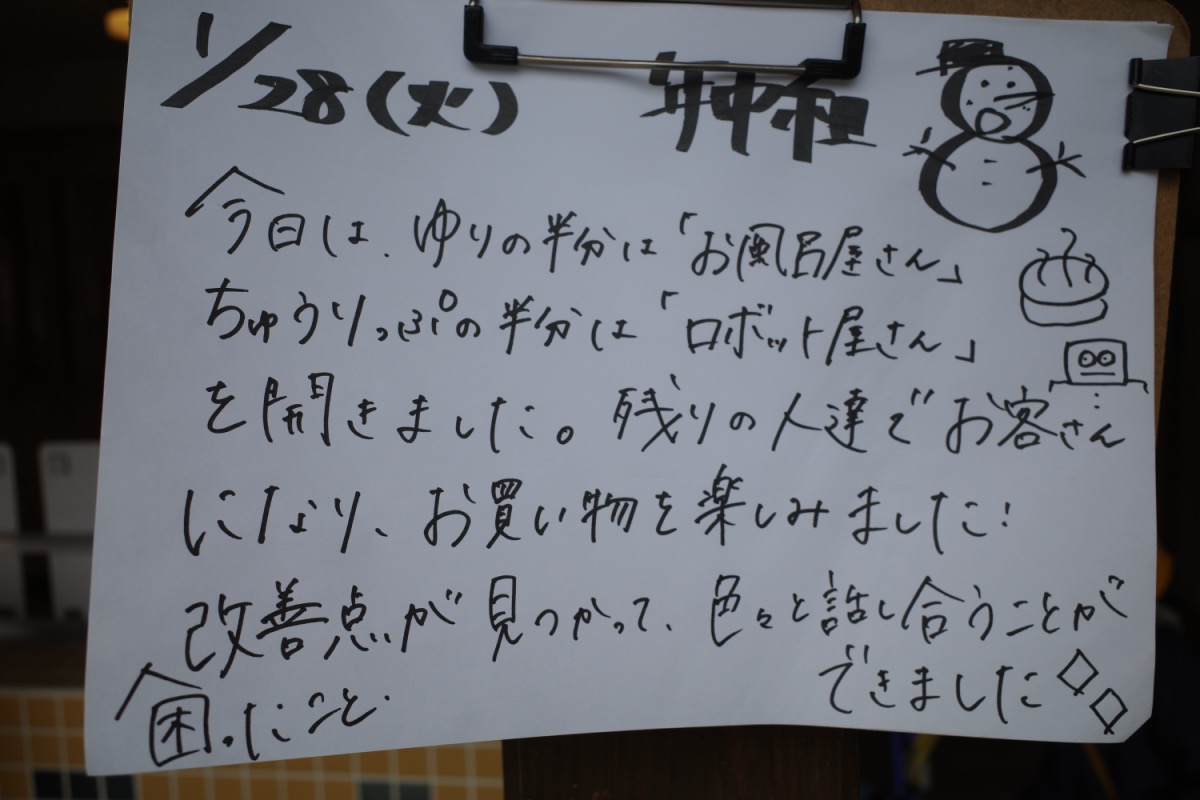 1/28(火) 年中組
今日は、ゆりの半分は「お風呂屋さん」
ちゅうりっぷの半分は「ロボット屋さん」
を開きました。残りの人達でお客さん
になり、お買い物を楽しみました!
改善点が見つかって、色々と話し合うことが
できました
困ったこと